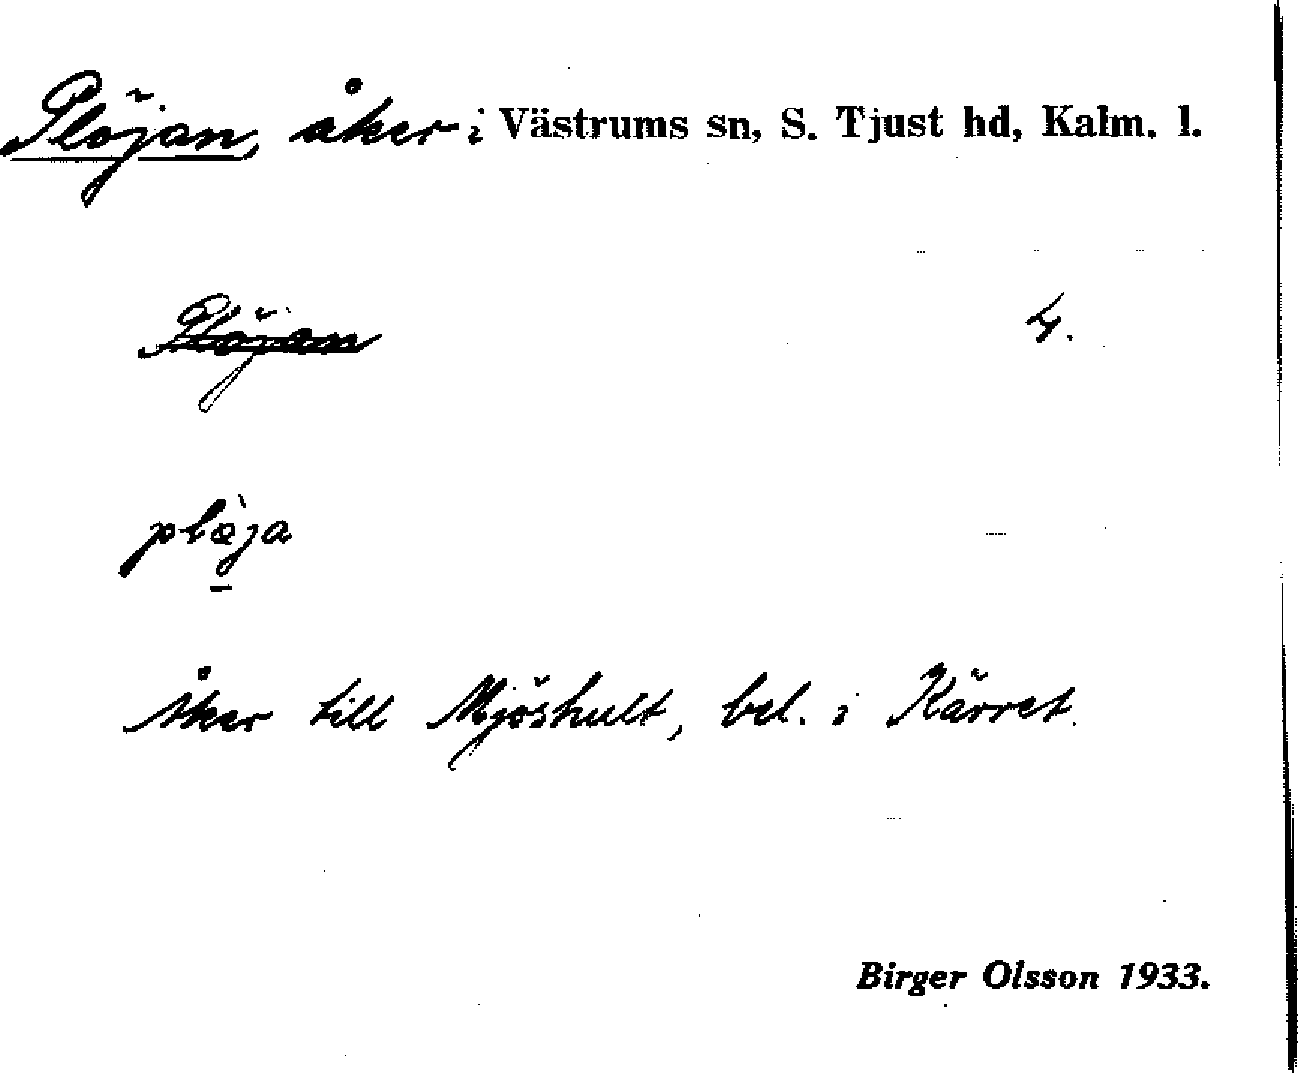 Plöjan, åker i Västrums sn, S. Tjust hd, Kalm. l.
Plöjan 4.
plö̀ja
Åker till Mjöshult, bel. i Kärret.
Birger Olsson 1933.